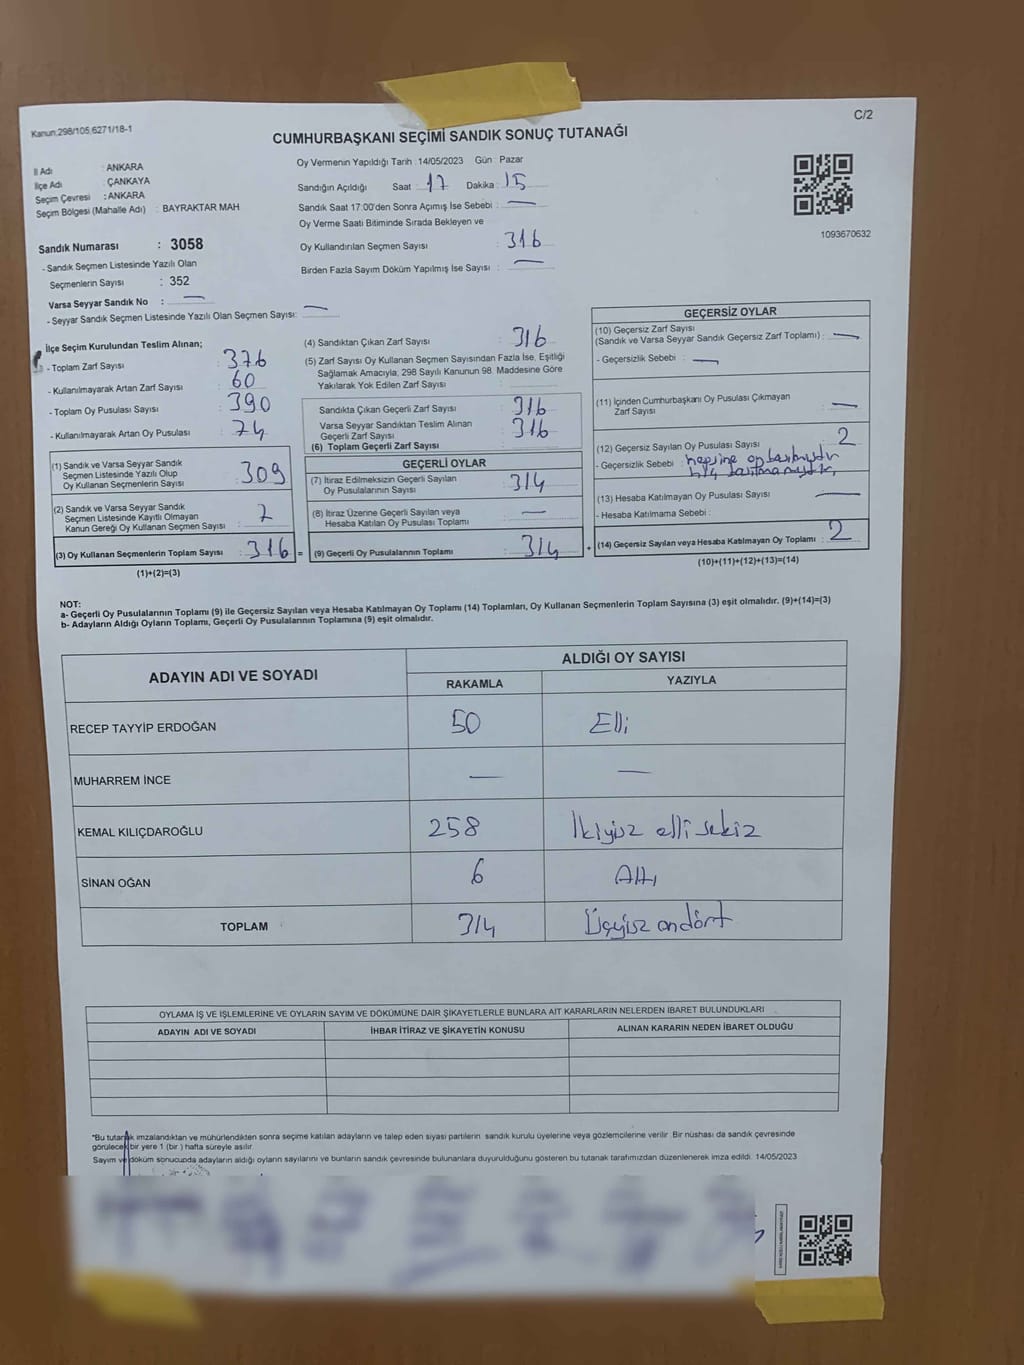 Kanun:298/105,6271/18-1
C/2
CUMHURBAŞKANI SEÇİMİ SANDIK SONUÇ TUTANAĞI
İl Adı : ANKARA
İlçe Adı : ÇANKAYA
Seçim Çevresi : ANKARA
Seçim Bölgesi (Mahalle Adı) : BAYRAKTAR MAH
Sandık Numarası : 3058
- Sandık Seçmen Listesinde Yazılı Olan
Seçmenlerin Sayısı : 352
Varsa Seyyar Sandık No : —
- Seyyar Sandık Seçmen Listesinde Yazılı Olan Seçmen Sayısı: —
Oy Vermenin Yapıldığı Tarih :14/05/2023 Gün Pazar
Sandığın Açıldığı Saat : 17 Dakika : 15
Sandık Saat 17:00'den Sonra Açımış İse Sebebi : —
Oy Verme Saati Bitiminde Sırada Bekleyen ve
Oy Kullandırılan Seçmen Sayısı : 316
Birden Fazla Sayım Döküm Yapılmış İse Sayısı : —
1093670632
İlçe Seçim Kurulundan Teslim Alınan;
- Toplam Zarf Sayısı : 376
- Kullanılmayarak Artan Zarf Sayısı : 60
- Toplam Oy Pusulası Sayısı : 390
- Kullanılmayarak Artan Oy Pusulası : 74
(1) Sandık ve Varsa Seyyar Sandık
Seçmen Listesinde Yazılı Olup
Oy Kullanan Seçmenlerin Sayısı : 309
(2) Sandık ve Varsa Seyyar Sandık
Seçmen Listesinde Kayıtlı Olmayan
Kanun Gereği Oy Kullanan Seçmen Sayısı : 7
(3) Oy Kullanan Seçmenlerin Toplam Sayısı : 316 =
(1)+(2)=(3)
(4) Sandıktan Çıkan Zarf Sayısı : 316
(5) Zarf Sayısı Oy Kullanan Seçmen Sayısından Fazla İse, Eşitliği
Sağlamak Amacıyla, 298 Sayılı Kanunun 98. Maddesine Göre
Yakılarak Yok Edilen Zarf Sayısı :
Sandıkta Çıkan Geçerli Zarf Sayısı : 316
Varsa Seyyar Sandıktan Teslim Alınan
Geçerli Zarf Sayısı : 316
(6) Toplam Geçerli Zarf Sayısı :
GEÇERLİ OYLAR
(7) İtiraz Edilmeksizin Geçerli Sayılan
Oy Pusulalarının Sayısı : 314
(8) İtiraz Üzerine Geçerli Sayılan veya
Hesaba Katılan Oy Pusulası Toplamı : —
(9) Geçerli Oy Pusulalarının Toplamı : 314 +
GEÇERSİZ OYLAR
(10) Geçersiz Zarf Sayısı
(Sandık ve Varsa Seyyar Sandık Geçersiz Zarf Toplamı) : —
- Geçersizlik Sebebi : —
(11) İçinden Cumhurbaşkanı Oy Pusulası Çıkmayan
Zarf Sayısı : —
(12) Geçersiz Sayılan Oy Pusulası Sayısı : 2
- Geçersizlik Sebebi : hepsine
(13) Hesaba Katılmayan Oy Pusulası Sayısı : —
- Hesaba Katılmama Sebebi :
(14) Geçersiz Sayılan veya Hesaba Katılmayan Oy Toplamı : 2
(10)+(11)+(12)+(13)=(14)
NOT:
a- Geçerli Oy Pusulalarının Toplamı (9) ile Geçersiz Sayılan veya Hesaba Katılmayan Oy Toplamı (14) Toplamları, Oy Kullanan Seçmenlerin Toplam Sayısına (3) eşit olmalıdır. (9)+(14)=(3)
b- Adayların Aldığı Oyların Toplamı, Geçerli Oy Pusulalarının Toplamına (9) eşit olmalıdır.
ADAYIN ADI VE SOYADI
ALDIĞI OY SAYISI
RAKAMLA YAZIYLA
RECEP TAYYİP ERDOĞAN 50 Elli
MUHARREM İNCE — —
KEMAL KILIÇDAROĞLU 258 İkiyüz elli sekiz
SİNAN OĞAN 6 Altı
TOPLAM 314 Üçyüz ondört
OYLAMA İŞ VE İŞLEMLERİNE VE OYLARIN SAYIM VE DÖKÜMÜNE DAİR ŞİKAYETLERLE BUNLARA AİT KARARLARIN NELERDEN İBARET BULUNDUKLARI
ADAYIN ADI VE SOYADI İHBAR İTİRAZ VE ŞİKAYETİN KONUSU ALINAN KARARIN NEDEN İBARET OLDUĞU
*Bu tutanak imzalandıktan ve mühürlendikten sonra seçime katılan adayların ve talep eden siyasi partilerin sandık kurulu üyelerine veya gözlemcilerine verilir. Bir nüshası da sandık çevresinde
görülecek bir yere 1 (bir) hafta süreyle asılır.
Sayım ve döküm sonucunda adayların aldığı oyların sayılarını ve bunların sandık çevresinde bulunanlara duyurulduğunu gösteren bu tutanak tarafımızdan düzenlenerek imza edildi. 14/05/2023